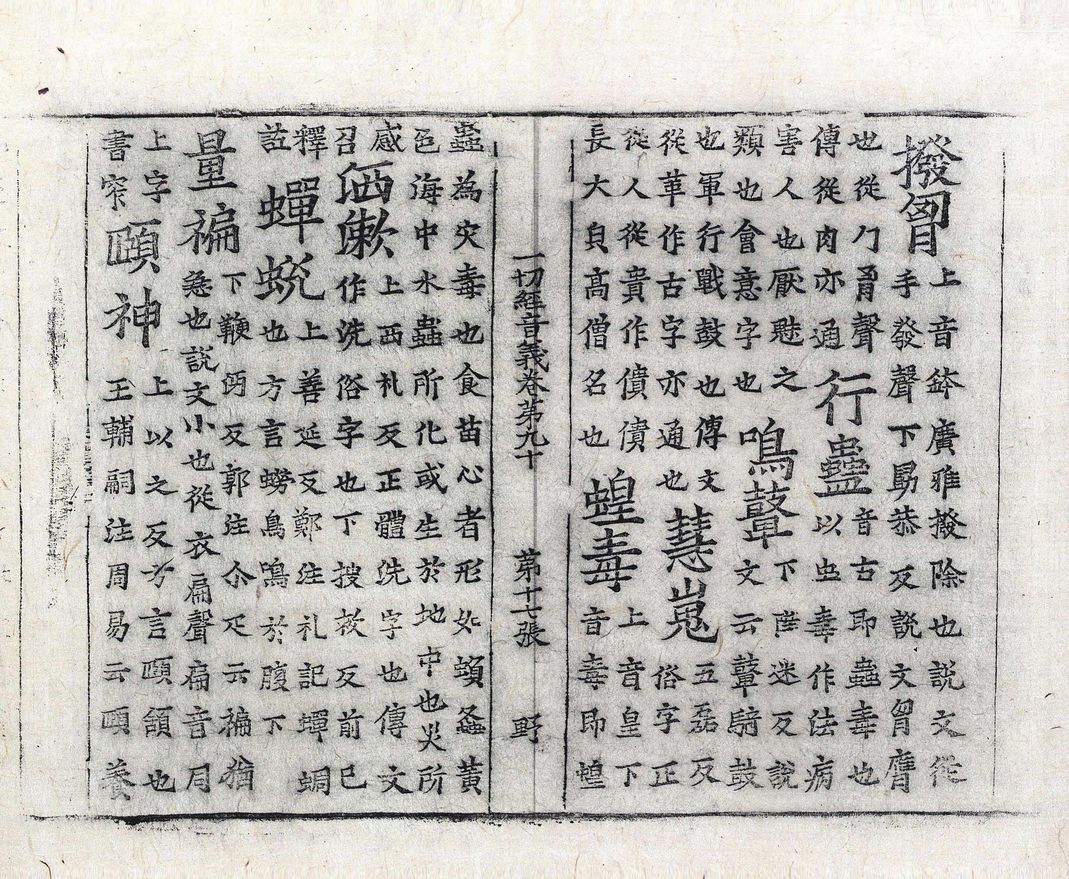 撥匈上音鉢廣雅撥除也說文從
手發聲下勗恭反說文胷膺
也從勹胷聲
傳從肉亦通
行蠱音古即蠱毒也
以虫毒作法病
害人也厭魅之
類也會意字也
鳴鼙下陛迷反說
文云鼙騎鼓
也軍行戰鼓也傳文
從革作古字亦通也
慧嵬五磊反
俗字正
從人從貴作僓僓
長大皃高僧名也
蝗毒上音皇下
音毒即蝗
一切經音義卷第九十 第十七張 野
蟲為灾毒也食苗心者形如螽黃
色海中水蟲所化或生於地中也災所
感
召
洒漱上西礼反正體洗字也傳文
作洗俗字也下搜救反前已
釋
註
蟬蛻上善延反鄭注礼記蟬蜩
也方言蟧鳥鳴於腹下
量褊下鞭沔反郭注尒疋云褊猶
急也說文小也從衣扁聲扁音同
上字
書窄
頤神上以之反方言頤頷也
王輔嗣注周易云頤養